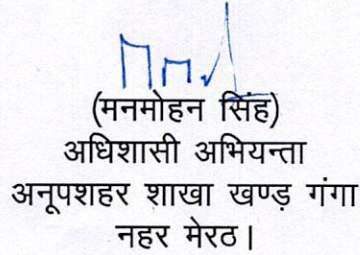 (मनमोहन सिंह)
अधिशासी अभियन्ता
अनूपशहर शाखा खण्ड़ गंगा
नहर मेरठ।